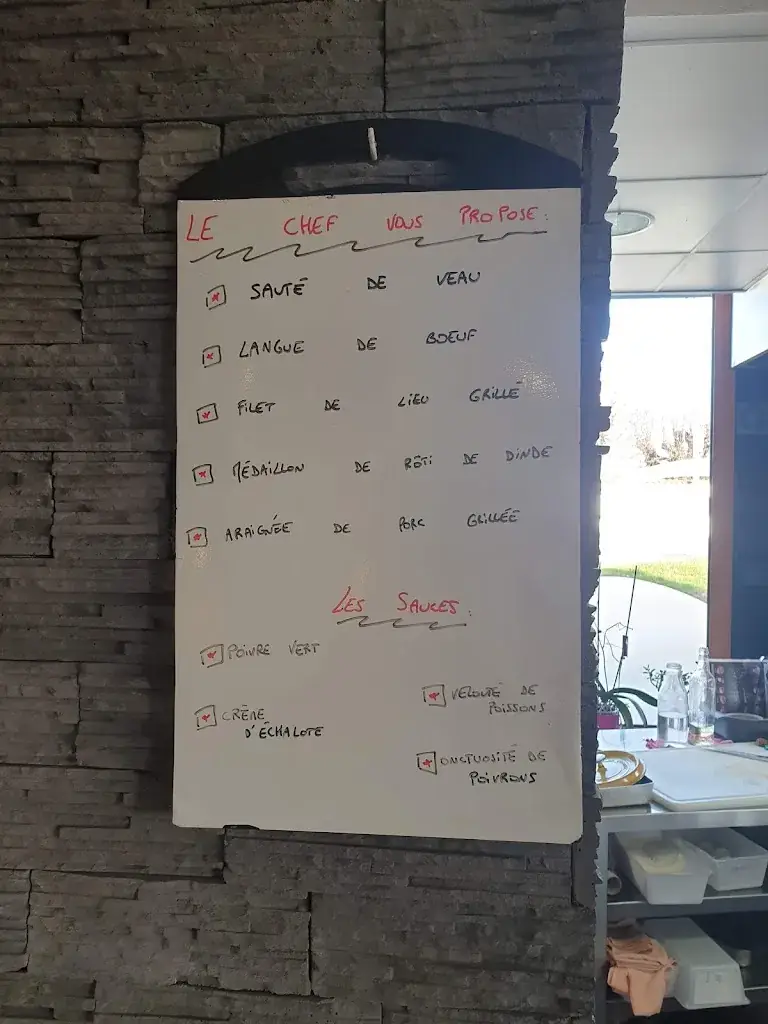 LE CHEF VOUS PROPOSE:
SAUTÉ DE VEAU
LANGUE DE BOEUF
FILET DE LIEU GRILLÉ
MÉDAILLON DE RÔTI DE DINDE
ARAIGNÉE DE PORC GRILLÉE
LES SAUCES:
POIVRE VERT
CRÈME
D'ÉCHALOTE
VELOUTÉ DE
POISSONS
ONCTUOSITÉ DE
POIVRONS